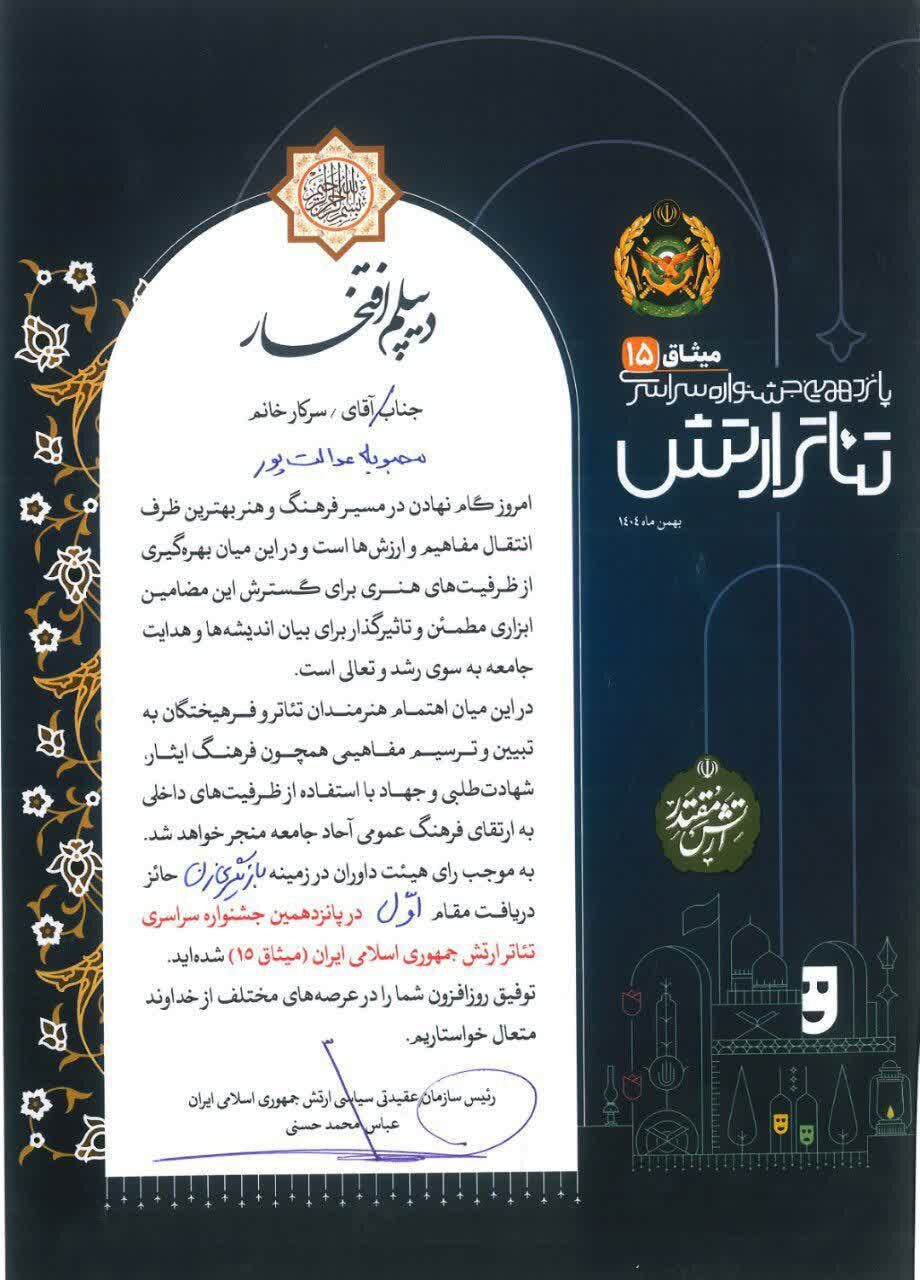 بسم الله الرحمن الرحیم
دیپلم افتخار
جناب آقای / سرکار خانم
محبوبه عدالت پور
امروز گام نهادن در مسیر فرهنگ و هنر بهترین ظرف
انتقال مفاهیم و ارزش‌ها است و در این میان بهره‌گیری
از ظرفیت‌های هنری برای گسترش این مضامین
ابزاری مطمئن و تاثیرگذار برای بیان اندیشه‌ها و هدایت
جامعه به سوی رشد و تعالی است.
در این میان اهتمام هنرمندان تئاتر و فرهیختگان به
تبیین و ترسیم مفاهیمی همچون فرهنگ ایثار،
شهادت‌طلبی و جهاد با استفاده از ظرفیت‌های داخلی
به ارتقای فرهنگ عمومی آحاد جامعه منجر خواهد شد.
به موجب رای هیئت داوران در زمینه بازیگری زن حائز
دریافت مقام اوّل در پانزدهمین جشنواره سراسری
تئاتر ارتش جمهوری اسلامی ایران (میثاق ۱۵) شده‌اید.
توفیق روزافزون شما را در عرصه‌های مختلف از خداوند
متعال خواستاریم.
رئیس سازمان عقیدتی سیاسی ارتش جمهوری اسلامی ایران
عباس محمد حسنی
میثاق ۱۵
پانزدهمین جشنواره سراسری
تئاتر ارتش
بهمن ماه ۱۴۰۴
ارتش مقتدر